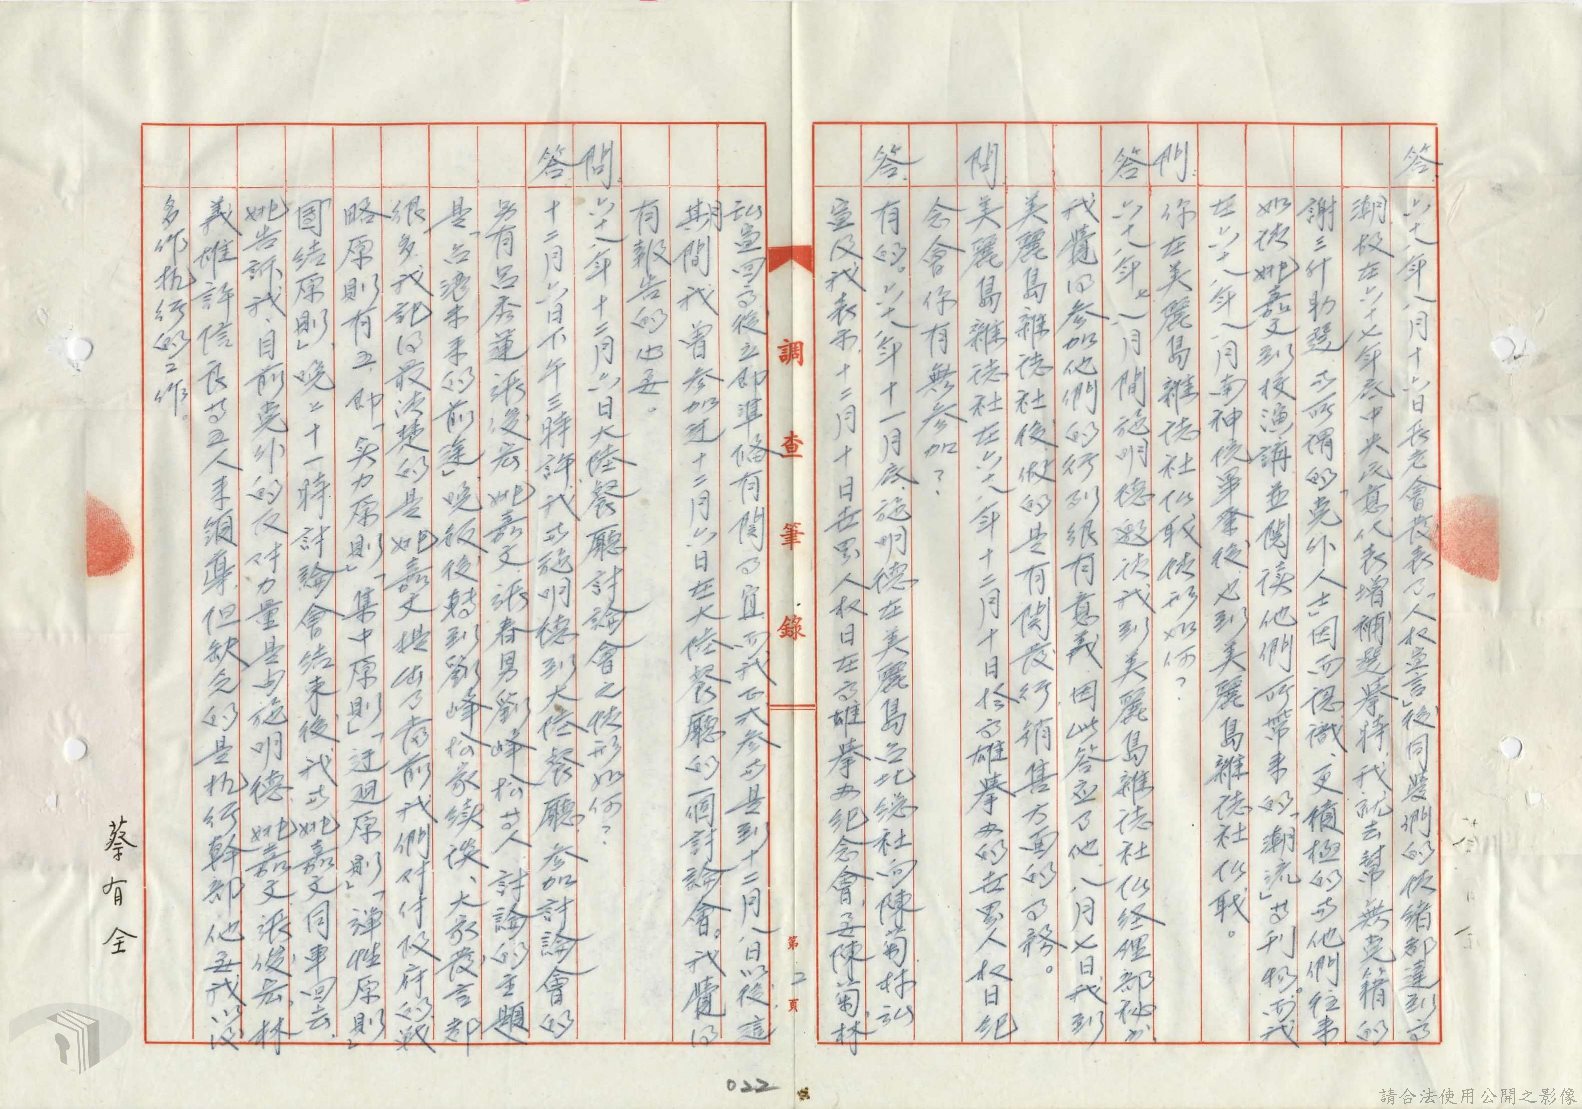 答：六十六年八月十六日長老會發表了「人权宣言」後同學們的情緒都達到高
潮，故在六十七年底中央民意代表增補選舉時，我就去幫無党籍的
謝三升助選，而所謂的「党外人士」因而認識、更積極的與他們往來
如後姚嘉文到校演講並閱讀他們所帶來的「潮流」等刊物。而我
在六十八年八月南神悅畢業後也到美麗島雜誌社任職。
問：你在美麗島雜誌社任职情形如何？
答：六十八年七、八月間施明德邀请我到美麗島雜誌社任经理部秘书
我覺得參加他們的行列很有意義，因此答应了他，八月七日我到
美麗島雜誌社後做的是有関发行銷售方面的事務。
問：美麗島雜誌社在六十八年十二月十日於高雄舉办的世界人权日纪
念會你有無參加？
答：有的。六十八年十一月底，施明德在美麗島台北總社向陳菊、林弘
宣及我表示，十二月十日世界人权日在高雄舉办纪念會，要陳菊、林
調查筆錄
第 2 頁
弘宣回高後立即準偹有関事宜，而我正式參与是到十二月八日以後，這
期間我曾參加过十二月六日在大陸餐廳的一個討論會。我覺得
有報告的必要。
問：六十八年十二月六日大陸餐廳討論會之情形如何？
答：十二月六日下午三時許，我与施明德到大陸餐廳參加討論會的
另有呂秀蓮、張俊宏、姚嘉文、張春男、劉峰松等人，討論的主題
是「台湾未来的前途」，晚飯後轉到劉峰松家续谈、大家發言都
很多，我記得最清楚的是姚嘉文提出了當前我們对付政府的战
略原則有五，即「实力原則」「集中原則」「迂迴原則」「彈性原則」
「團結原則」，晚上十一時討論會结束後，我与姚嘉文同車回去，
姚告訴我，目前党外的反对力量是由施明德、姚嘉文、張俊宏、林
義雄、許信良等五人来領導，但缺乏的是执行幹部，他要我以後
多作执行的工作。
蔡有全
022
請合法使用公開之影像